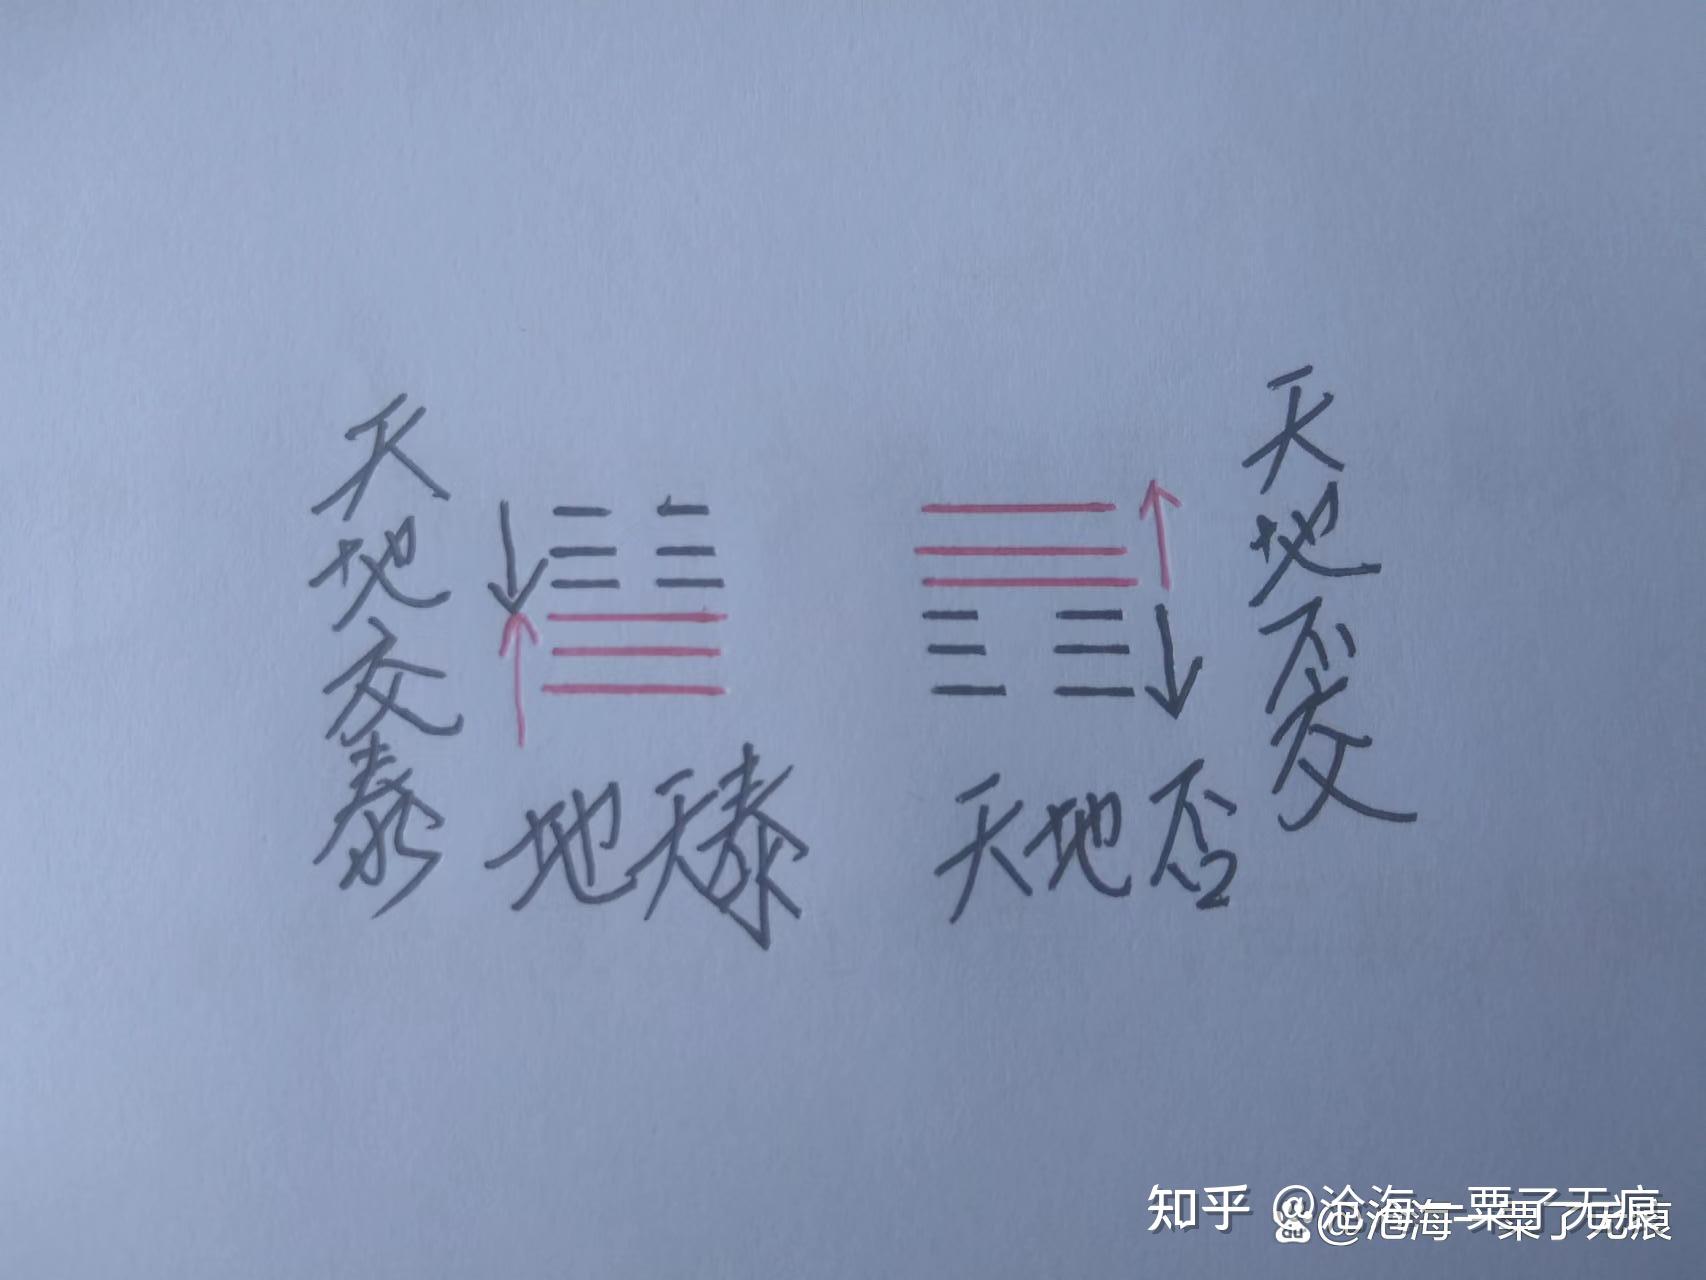 天地交泰
地天泰
天地否
天地不交
知乎 @沧海一粟了无痕
@沧海一粟了无痕